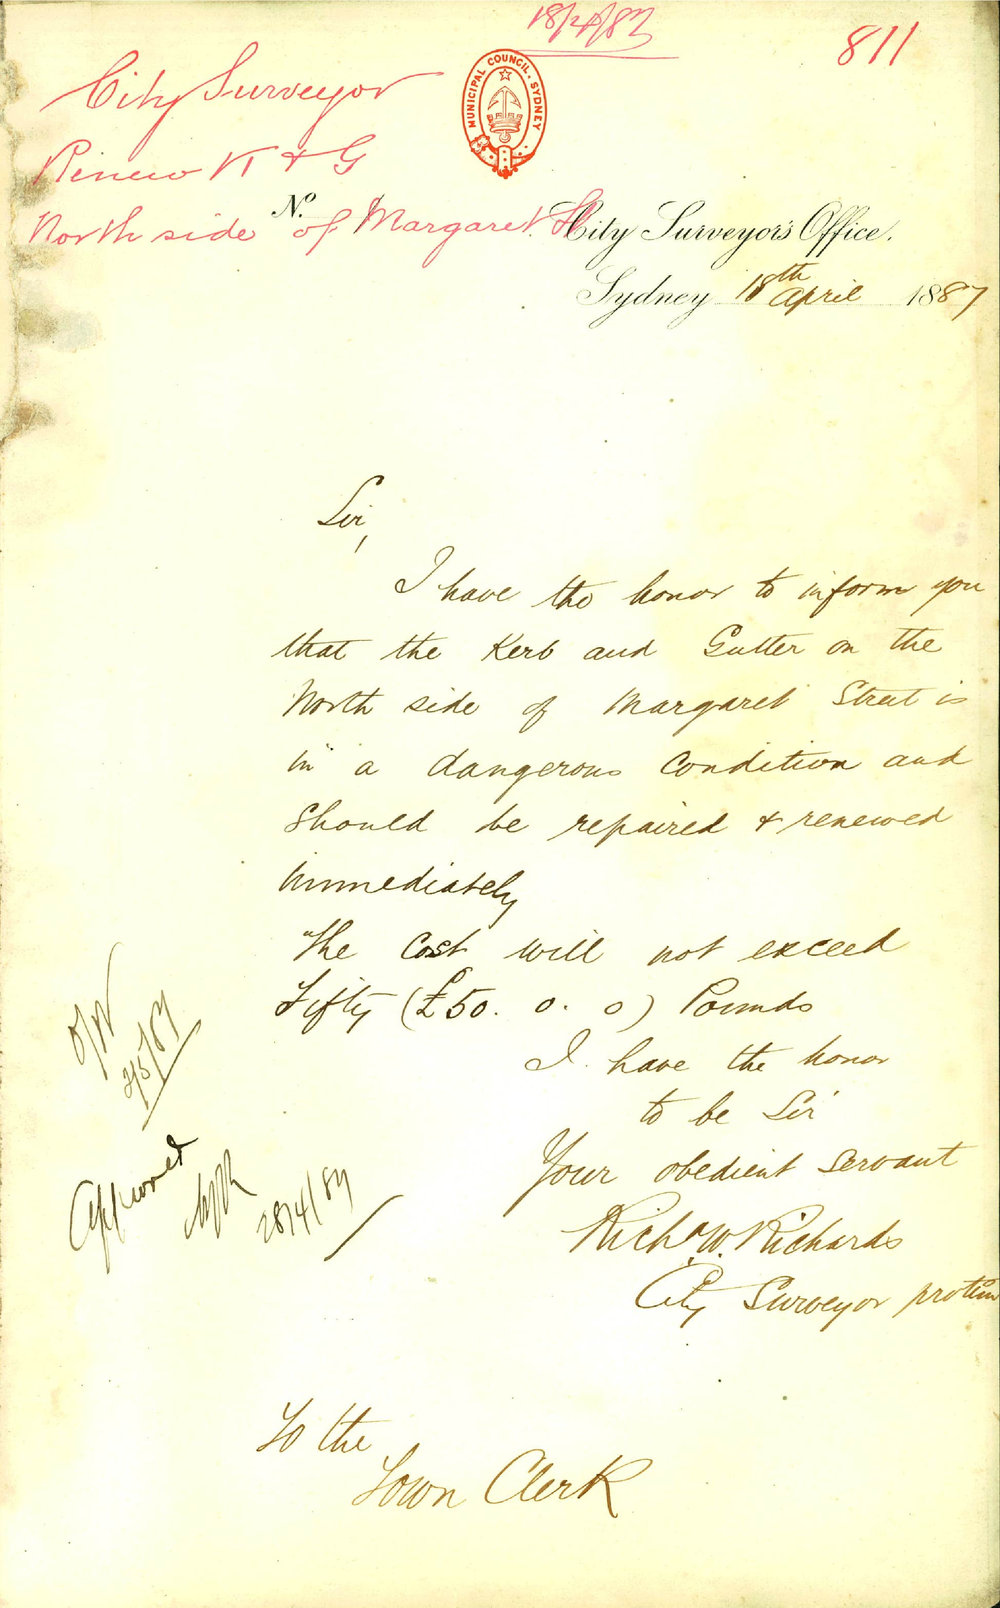 18/4/87
811
City Surveyor
MUNICIPAL COUNCIL. SYDNEY
Renew K & G
North side of Margaret St
No.
City Surveyor's Office.
Sydney 18th April 1887
Sir,
I have the honor to inform you
that the Kerb and Gutter on the
North side of Margaret Street is
in a dangerous condition and
should be repaired & renewed
immediately
The Cost will not exceed
Fifty (£50. 0. 0) Pounds
I have the honor
to be Sir
Your obedient servant
Richd W. Richards
City Surveyor protem
2/5/87
Approved
28/4/87
To the
Town Clerk